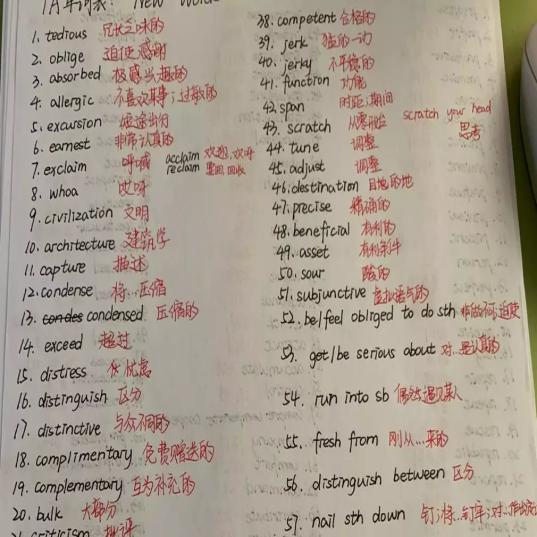 1. tedious 冗长乏味的
2. oblige 迫使 感谢
3. absorbed 极感兴趣的
4. allergic 不喜欢某事;过敏的
5. excursion 短途出行
6. earnest 非常认真的
7. exclaim 呼喊 acclaim 欢迎,欢呼
reclaim 回收
8. whoa 哎呀
9. civilization 文明
10. architecture 建筑学
11. capture 描述
12. condense 将…压缩
13. condensed 压缩的
14. exceed 超过
15. distress 忧虑
16. distinguish 区分
17. distinctive 与众不同的
18. complimentary 免费赠送的
19. complementary 互为补充的
20. bulk 大部分
criticism 批评
38. competent 合格的
39. jerk 猛的一动
40. jerky 不平稳的
41. function 功能
42. span 时距;期间
43. scratch 从零开始 scratch your head
思考
44. tune 调整
45. adjust 调整
46. destination 目的地
47. precise 精确的
48. beneficial 有利的
49. asset 有利条件
50. sour 酸的
51. subjunctive 虚拟语气的
52. be/feel obliged to do sth 迫使
53. get/be serious about 对…是认真的
54. run into sb 偶然遇见某人
55. fresh from 刚从…来的
56. distinguish between 区分
57. nail sth down